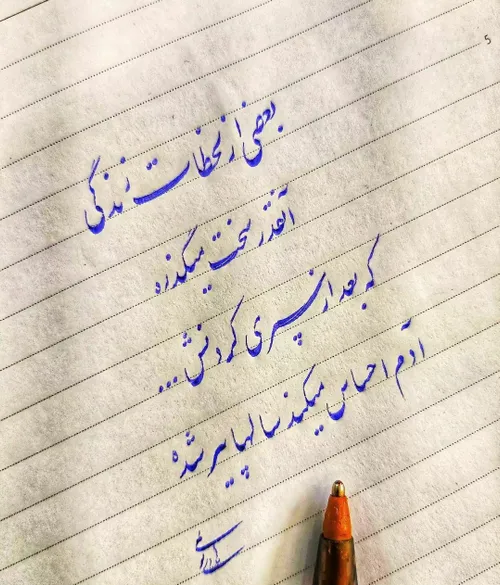 5
بعضی از لحظات زندگی
آنقدر سخت میگذره
که بعد از سپری کردنش...
آدم احساس میکنه سالها پیر شده